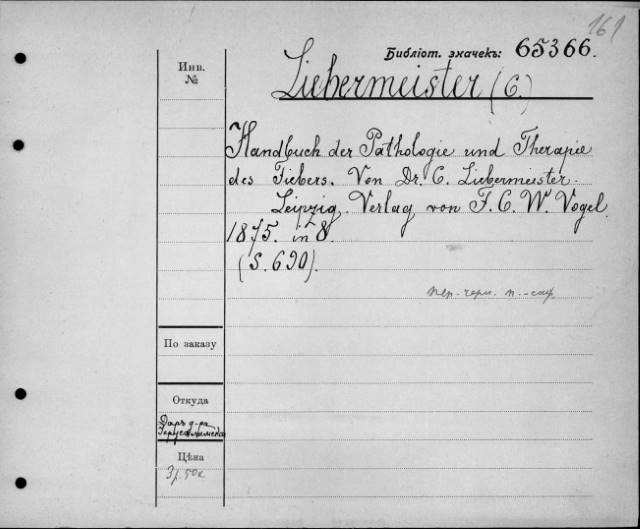 161
Библіот. значекъ: 65366.
Инв.
№
Liebermeister (C.)
Handbuch der Pathologie und Therapie
des Fiebers. Von Dr. C. Liebermeister.
Leipzig. Verlag von F. C. W. Vogel.
1875. in 8.
(S. 690).
По заказу
Откуда
Даръ д-ра
Цѣна
3 р. 50 к